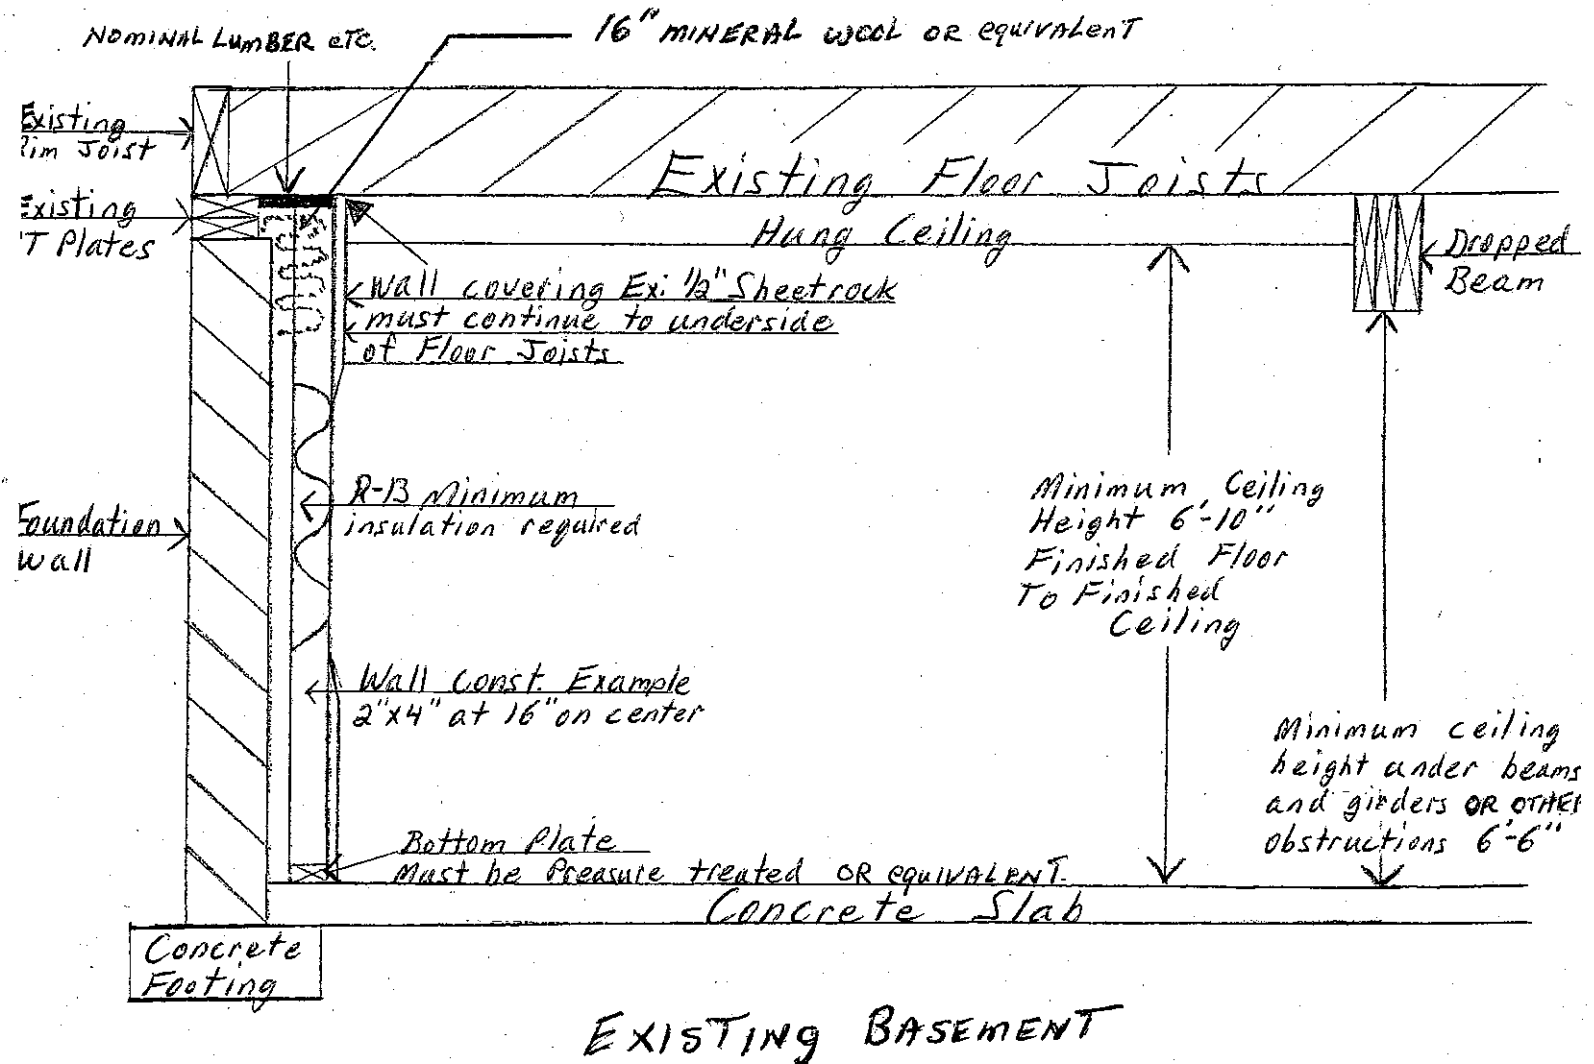 NOMINAL LUMBER eTC.
16" MINERAL WOOL OR equIVALenT
Existing
Rim Joist
Existing Floor Joists
Existing
PT Plates
Hung Ceiling
Dropped
Beam
Wall covering Ex: 1/2" Sheetrock
must continue to underside
of Floor Joists
R-13 Minimum
insulation required
Minimum Ceiling
Height 6'-10"
Finished Floor
To Finished
Ceiling
Foundation
Wall
Wall Const. Example
2"x4" at 16" on center
Minimum ceiling
height under beams
and girders OR OTHER
obstructions 6'-6"
Bottom Plate
Must be Preasure treated OR equIVALENT.
Concrete Slab
Concrete
Footing
EXISTING BASEMENT